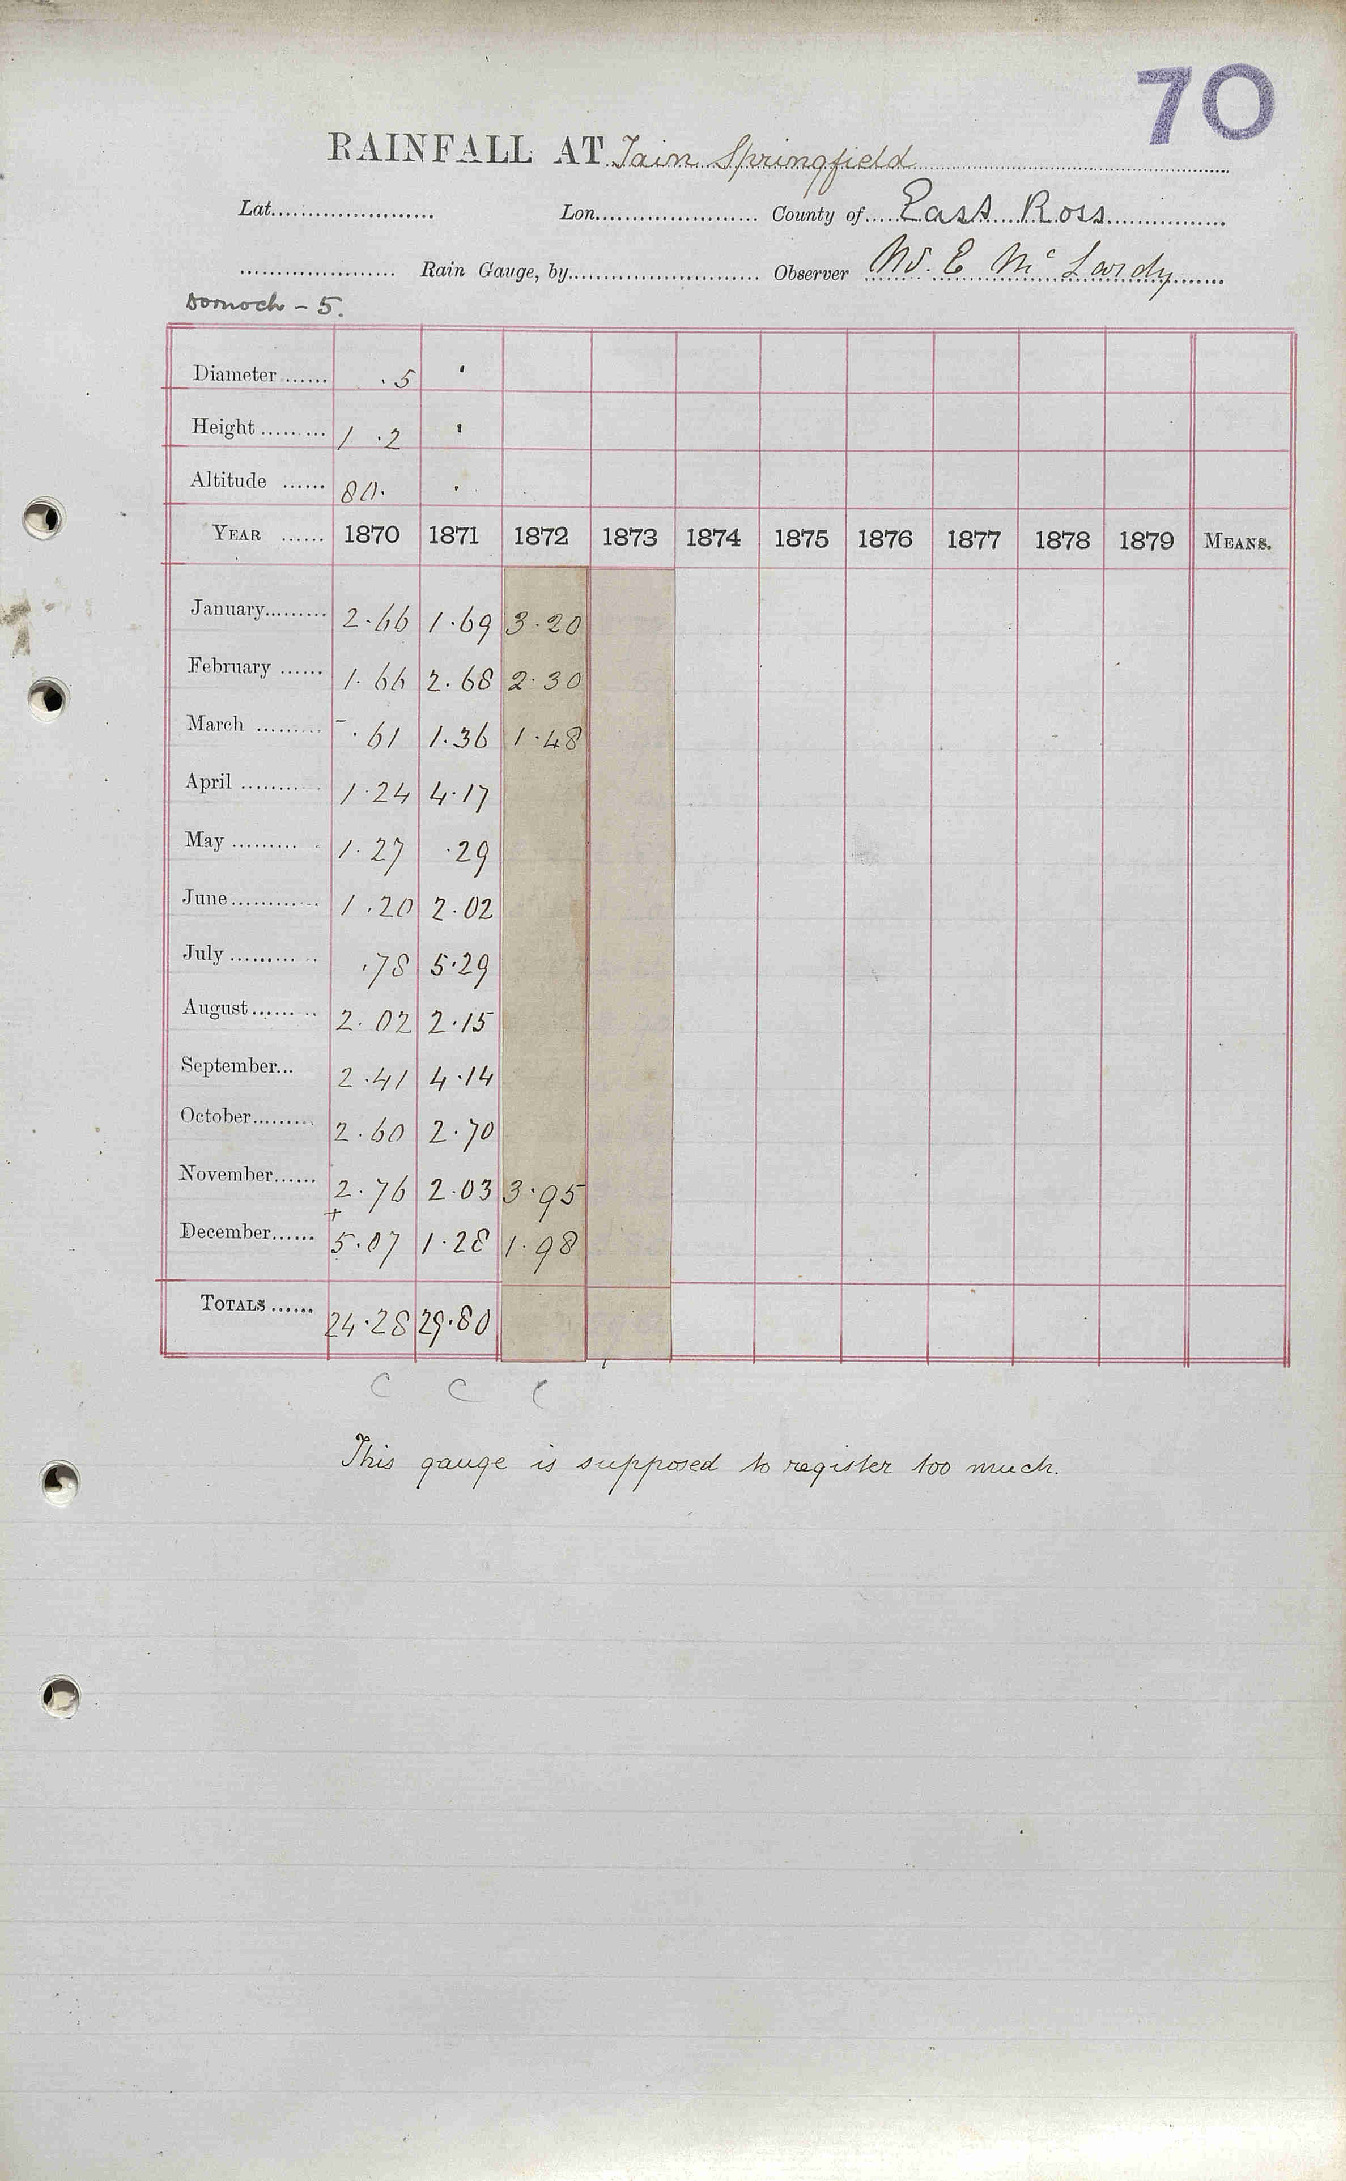 70
RAINFALL AT Tain Springfield
Lat. Lon. County of East Ross
Rain Gauge, by Observer W. E McLardy
Dornoch - 5.
Diameter ...... .5 '
Height ......... 1 .2 '
Altitude ...... 80. .
YEAR ...... 1870 1871 1872 1873 1874 1875 1876 1877 1878 1879 MEANS.
January......... 2.66 1.69 3.20
February ...... 1.66 2.68 2.30
March ......... - .61 1.36 1.48
April ............ 1.24 4.17
May ............ 1.27 .29
June............ 1.20 2.02
July ............ .78 5.29
August......... 2.02 2.15
September... 2.41 4.14
October......... 2.60 2.70
November...... 2.76 2.03 3.95
December...... + 5.07 1.28 1.98
TOTALS ...... 24.28 29.80
C C C
This gauge is supposed to register too much.